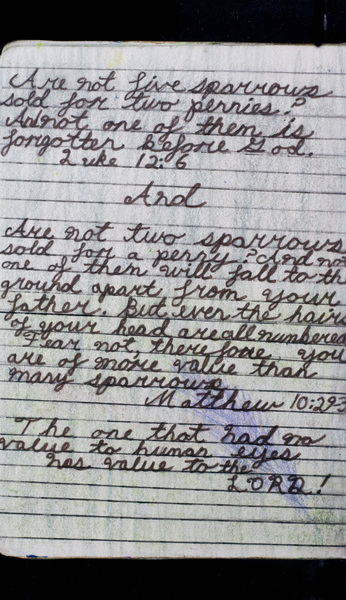 Are not five sparrows
sold for two pennies?
And not one of them is
forgotten before God.
Luke 12:6
And
Are not two sparrows
sold for a penny? And not
one of them will fall to th
ground apart from your
father. But even the hairs
of your head are all numbered
Fear not, therefore you
are of more value than
many sparrows
Matthew 10:29-3
The one that had no
value to human eyes
has value to the
LORD!